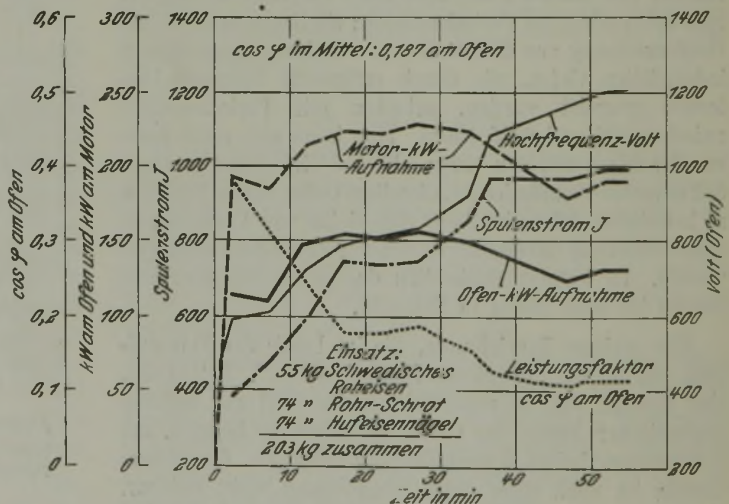 0,6
0,5
0,4
0,3
0,2
0,1
0
cos φ am Ofen
300
250
200
150
100
50
0
kW am Ofen und kW am Motor
1400
1200
1000
800
600
400
200
Spulenstrom J
cos φ im Mittel: 0,187 am Ofen
Motor-kW-
Aufnahme
Hochfrequenz-Volt
Spulenstrom J
Ofen-kW-Aufnahme
Leistungsfaktor
cos φ am Ofen
Einsatz:
55 kg Schwedisches
Roheisen
74 " Rohr-Schrot
74 " Hufeisennägel
203 kg zusammen
1400
1200
1000
800
600
400
200
Volt (Ofen)
0 10 20 30 40 50
Zeit in min